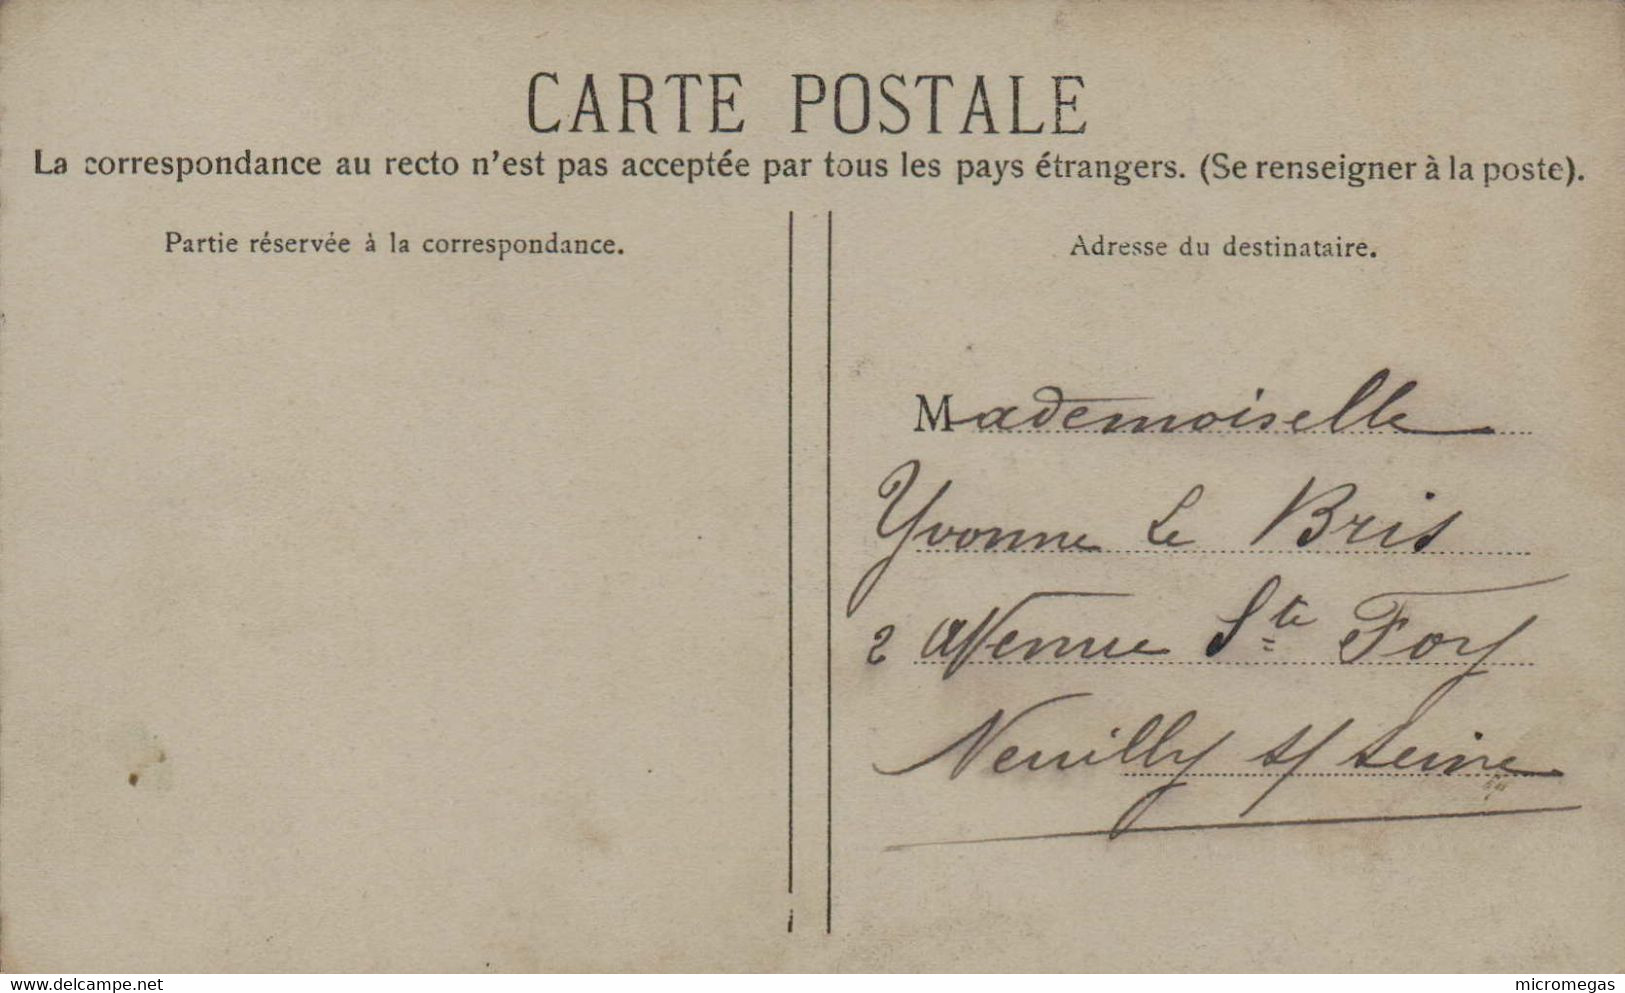 CARTE POSTALE
La correspondance au recto n'est pas acceptée par tous les pays étrangers. (Se renseigner à la poste).
Partie réservée à la correspondance.
Adresse du destinataire.
Mademoiselle
Yvonne Le Bris
2 Avenue Ste Foy
Neuilly s/ Seine
www.delcampe.net
micromegas